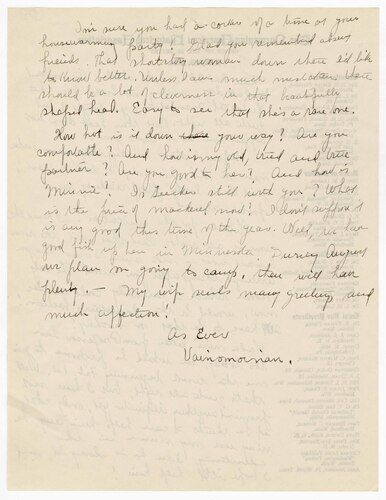 I'm sure you had a corker of a time at your
housewarmin party! Glad you remembered absent
friends. That Shotstory woman down there I'd like
to know better. Unless I am much mistaken there
should be a lot of cleverness in that beautifully
shaped head. Easy to see that she's a rare one.
How hot is it down your way? Are you
comfortable? And how is my old, tried and true
partner? Are you good to her? And how is
Minnie? Is Tucker still with you? What
is the price of mackerel now? I don't suppose it
is any good this time of the year. Well, we have
good fish up here in Minnesota. During August
we plan on going to camp, then will have
plenty. — My wife sends many greetings and
much affection!
As Ever
Vainomoinan.